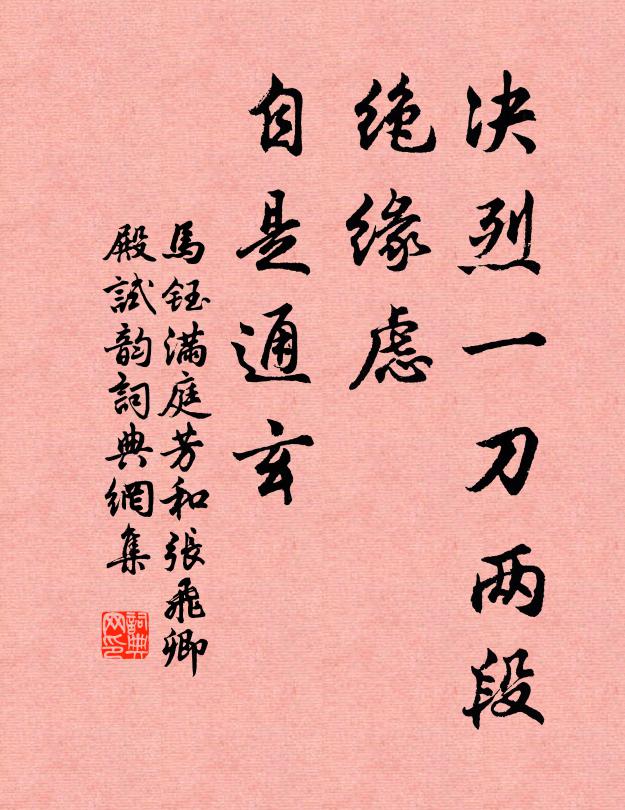 决烈一刀两段
绝缘虑
自是通玄
馬鈺满庭芳和張飛卿
殿試韵詞典網集
詞典
网印